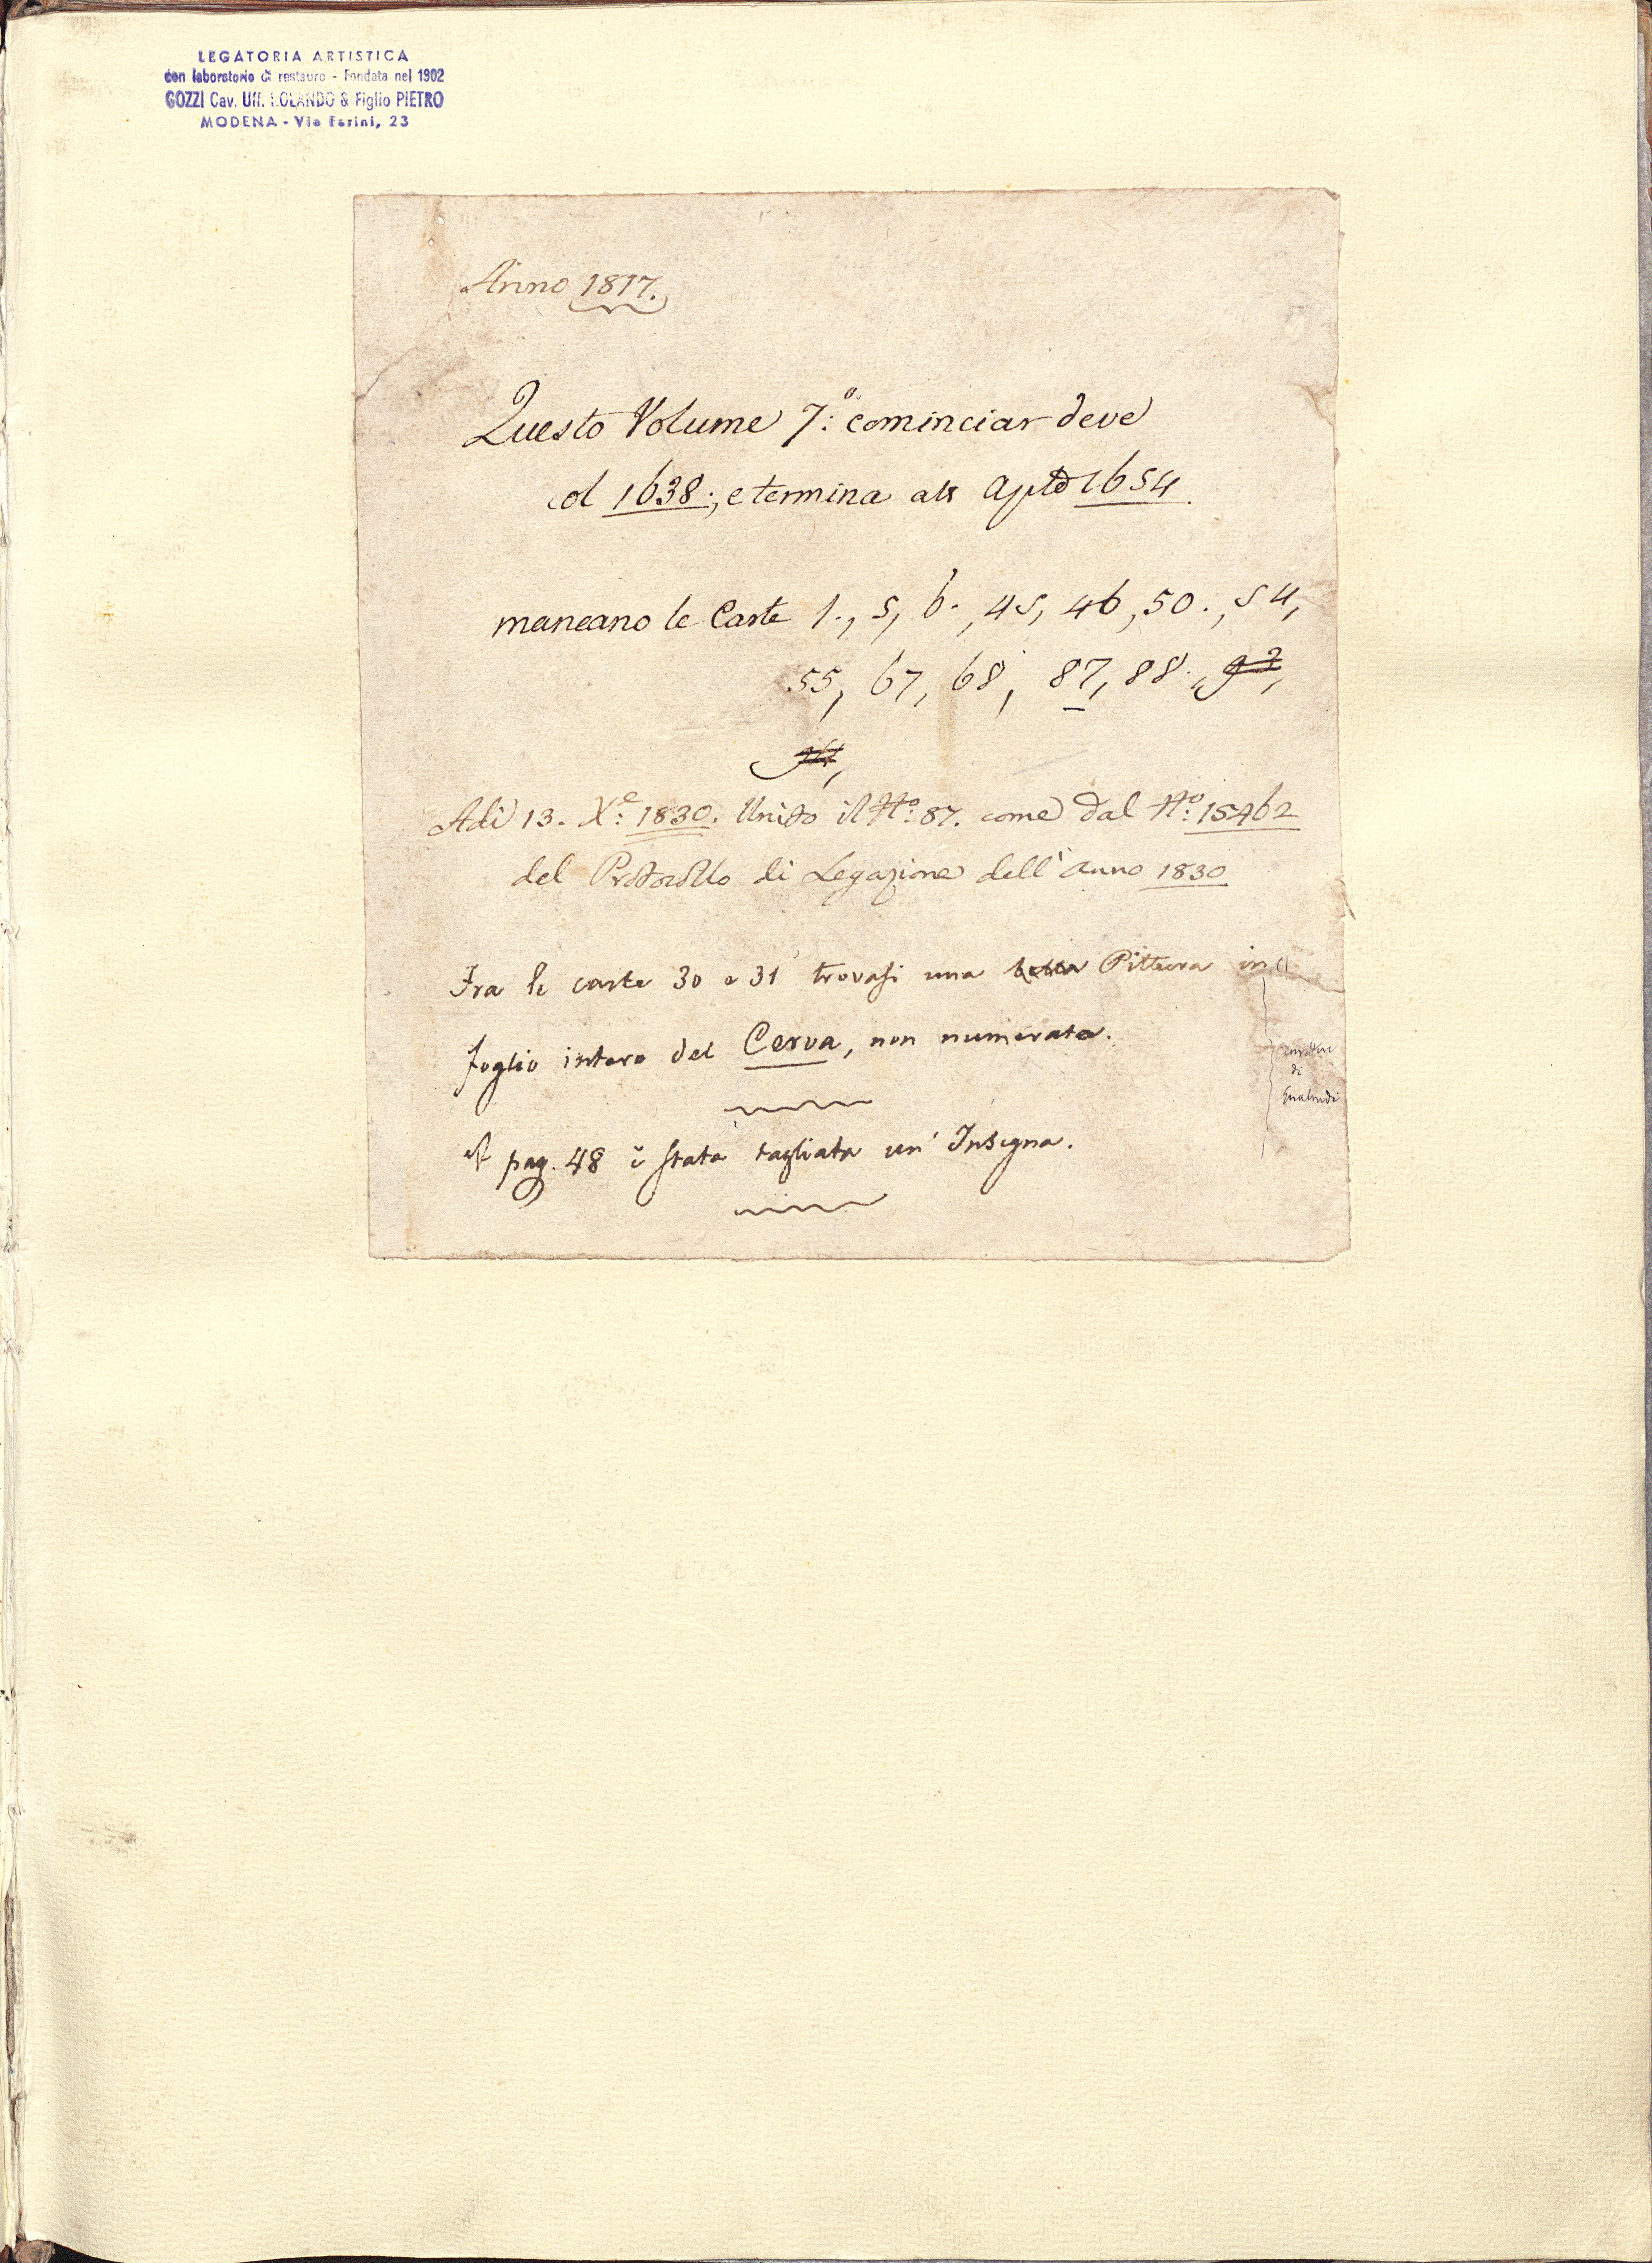 LEGATORIA ARTISTICA
con laboratorio di restauro - Fondata nel 1902
GOZZI Cav. Uff. ROLANDO & Figlio PIETRO
MODENA - Via Farini, 23
Anno 1817.
Questo Volume 7:º cominciar deve
col 1638:, e termina 1654.
mancano le Carte 1., 5, 6., 45, 46, 50., 54,
55, 67, 68, 87, 88.,
Adì 13. Xe: 1830. Unito il Nº: 87. come dal Nº: 15462
del Protocollo di Legazione dell'anno 1830
Fra le carte 30 e 31 trovasi una bella Pittura in
foglio intero del Cerva, non numerata.
A pag. 48 è stata tagliata un' Insegna.
di
Gualandi